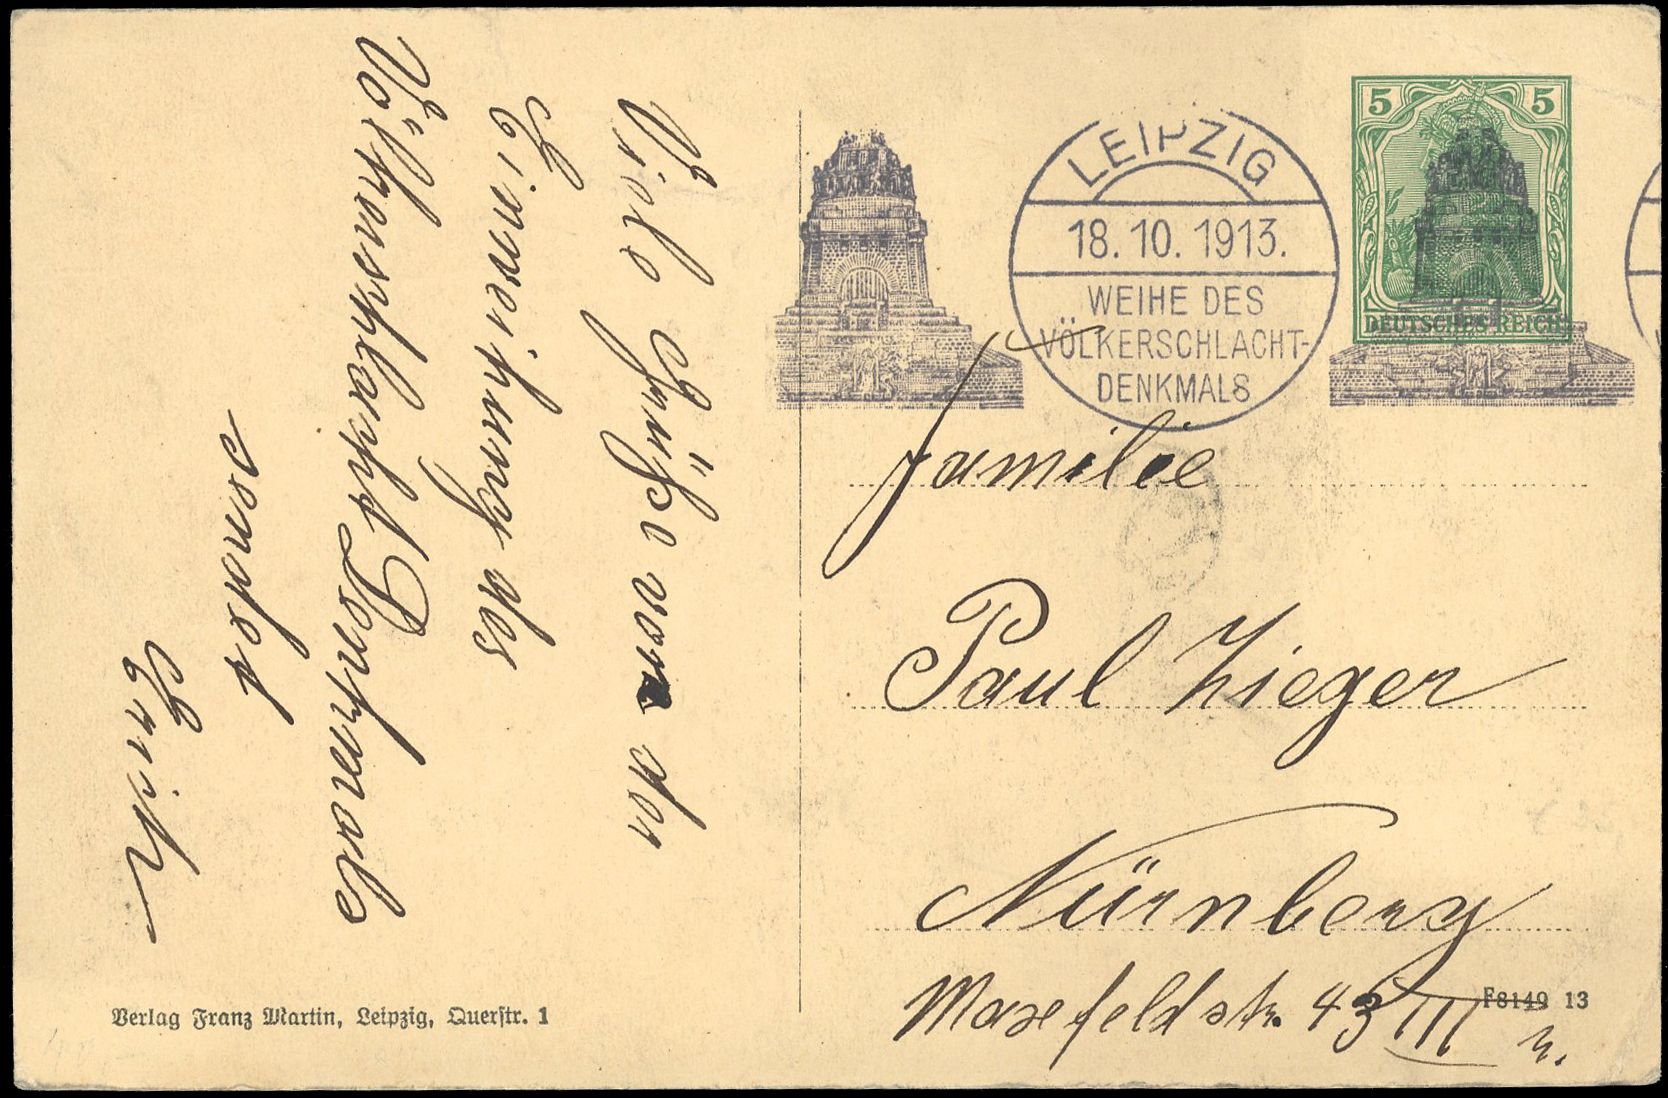 Viele Grüße von der
Einweihung des
Völkerschlacht Denkmals
sendet
Erich
Verlag Franz Martin, Leipzig, Querstr. 1
LEIPZIG
18. 10. 1913.
WEIHE DES
VÖLKERSCHLACHT-
DENKMALS
5 5
DEUTSCHES REICH
Familie
Paul Zieger
Nürnberg
Maxfeldstr. 43 III
F8149 13